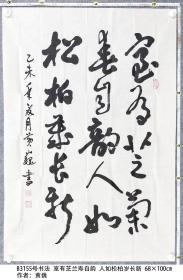 室有芝蘭
春自韵人如
松柏歲長新
乙未年 月黄巍書
B3155号书法 室有芝兰寿自韵 人如松柏岁长新 68×100cm
作者：黄巍